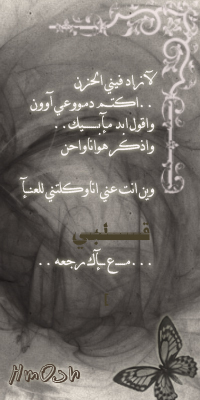 لآزاد فيني الحزن
..اكتم دمووعي آوون
واقول ابد مآبـيك..
واذكر هوانا واحن
وين انت عني انا وكلتني للعنـآ
قـلبي
...مـع ـآك رجعه..